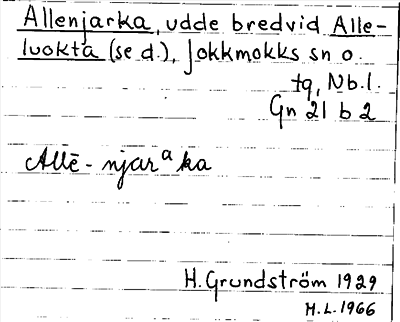 Allenjarka, udde bredvid Alle-
luokta (se d.), Jokkmokks sn o.
tg, Nb.l.
Gn 21 b 2
Allē-njarᵃka
H. Grundström 1929
H.L. 1966